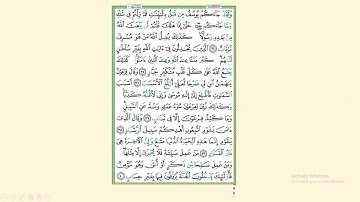 وَلَقَدْ جَآءَكُمْ يُوسُفُ مِن قَبْلُ بِٱلْبَيِّنَٰتِ فَمَا زِلْتُمْ فِى شَكٍّ
مِّمَّا جَآءَكُم بِهِۦ حَتَّىٰٓ إِذَا هَلَكَ قُلْتُمْ لَن يَبْعَثَ ٱللَّهُ
مِنۢ بَعْدِهِۦ رَسُولًا كَذَٰلِكَ يُضِلُّ ٱللَّهُ مَنْ هُوَ مُسْرِفٌ
مُّرْتَابٌ ٣٤ ٱلَّذِينَ يُجَٰدِلُونَ فِىٓ ءَايَٰتِ ٱللَّهِ بِغَيْرِ سُلْطَٰنٍ
أَتَىٰهُمْ كَبُرَ مَقْتًا عِندَ ٱللَّهِ وَعِندَ ٱلَّذِينَ ءَامَنُوا۟ كَذَٰلِكَ
يَطْبَعُ ٱللَّهُ عَلَىٰ كُلِّ قَلْبِ مُتَكَبِّرٍ جَبَّارٍ ٣٥ وَقَالَ فِرْعَوْنُ
يَٰهَٰمَٰنُ ٱبْنِ لِى صَرْحًا لَّعَلِّىٓ أَبْلُغُ ٱلْأَسْبَٰبَ ٣٦ أَسْبَٰبَ
ٱلسَّمَٰوَٰتِ فَأَطَّلِعَ إِلَىٰٓ إِلَٰهِ مُوسَىٰ وَإِنِّى لَأَظُنُّهُۥ كَٰذِبًا
وَكَذَٰلِكَ زُيِّنَ لِفِرْعَوْنَ سُوٓءُ عَمَلِهِۦ وَصُدَّ عَنِ ٱلسَّبِيلِ
وَمَا كَيْدُ فِرْعَوْنَ إِلَّا فِى تَبَابٍ ٣٧ وَقَالَ ٱلَّذِىٓ
ءَامَنَ يَٰقَوْمِ ٱتَّبِعُونِ أَهْدِكُمْ سَبِيلَ ٱلرَّشَادِ ٣٨
يَٰقَوْمِ إِنَّمَا هَٰذِهِ ٱلْحَيَوٰةُ ٱلدُّنْيَا مَتَٰعٌ وَإِنَّ ٱلْءَاخِرَةَ هِىَ
دَارُ ٱلْقَرَارِ ٣٩ مَنْ عَمِلَ سَيِّئَةً فَلَا يُجْزَىٰٓ إِلَّا مِثْلَهَا
وَمَنْ عَمِلَ صَٰلِحًا مِّن ذَكَرٍ أَوْ أُنثَىٰ وَهُوَ مُؤْمِنٌ
فَأُو۟لَٰٓئِكَ يَدْخُلُونَ ٱلْجَنَّةَ يُرْزَقُونَ فِيهَا بِغَيْرِ حِسَابٍ ٤٠
Activate Windows